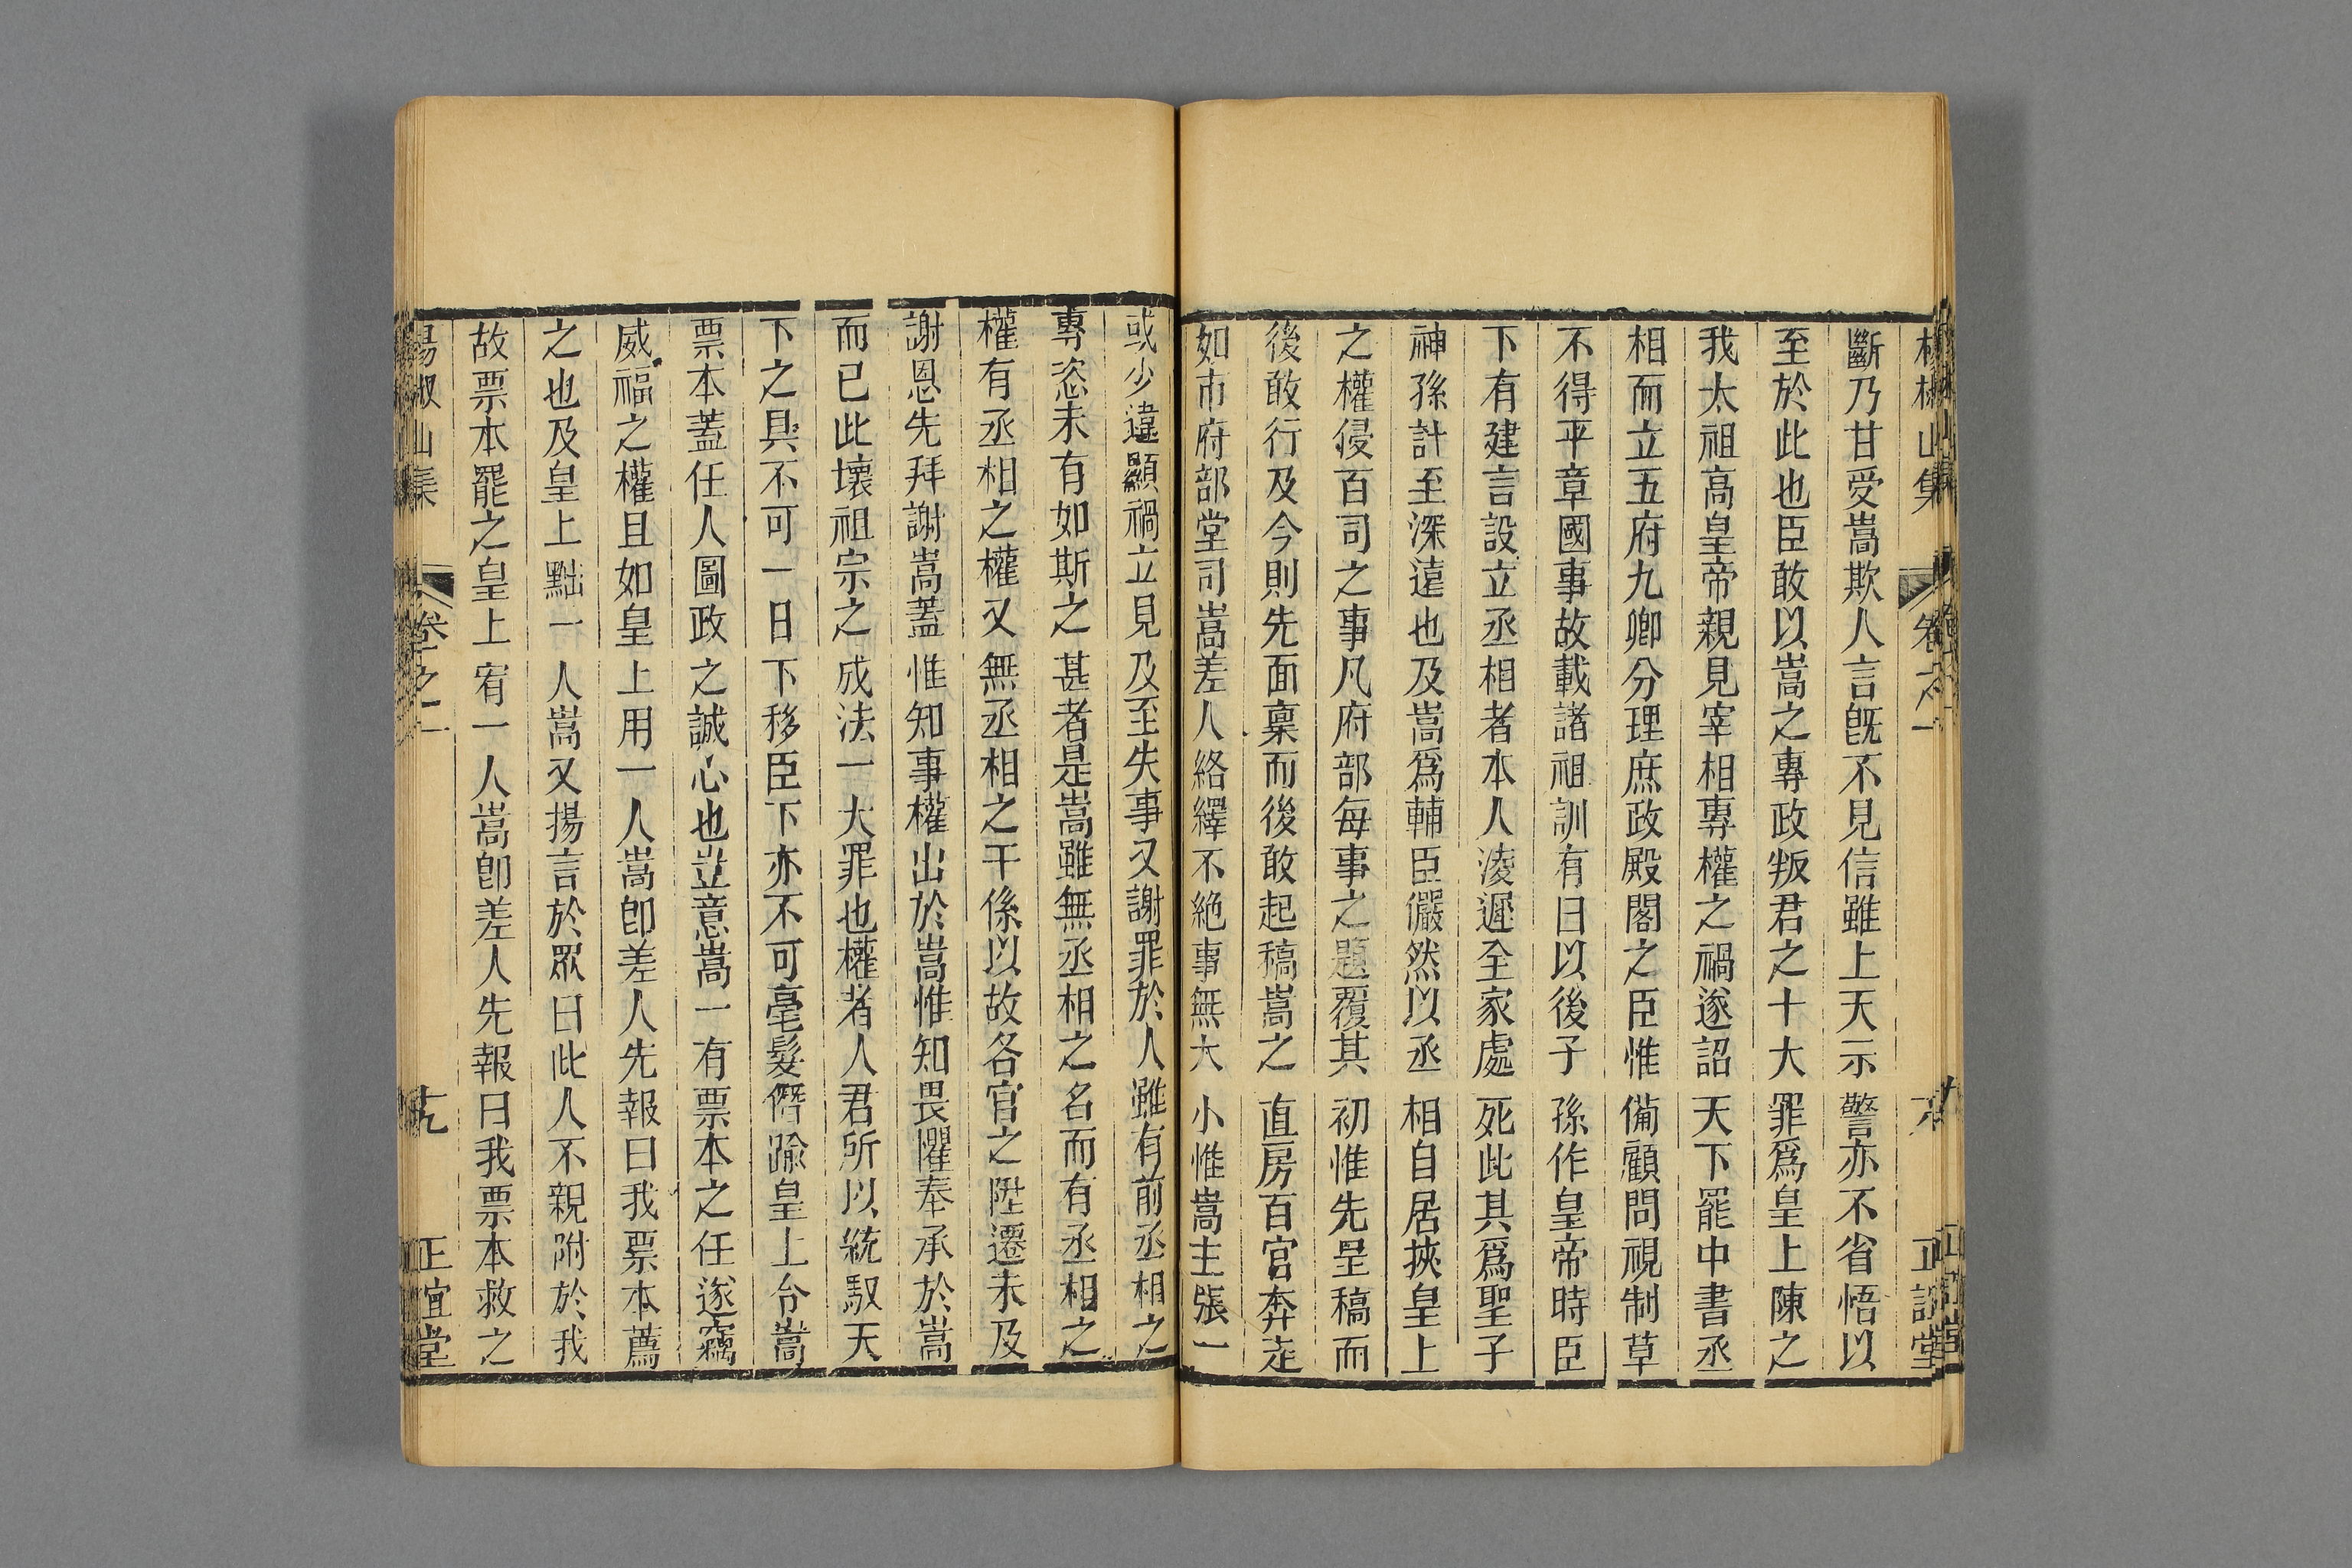 楊椒山集 卷之一 六 正誼堂
斷乃甘受嵩欺人言旣不見信雖上天示警亦不省悟以
至於此也臣敢以嵩之專政叛君之十大罪爲皇上陳之
我太祖高皇帝親見宰相專權之禍遂詔天下罷中書丞
相而立五府九卿分理庶政殿閣之臣惟備顧問視制草
不得平章國事故載諸祖訓有曰以後子孫作皇帝時臣
下有建言設立丞相者本人淩遲全家處死此其爲聖子
神孫計至深遠也及嵩爲輔臣儼然以丞相自居挾皇上
之權侵百司之事凡府部每事之題覆其初惟先呈稿而
後敢行及今則先面稟而後敢起稿嵩之直房百官奔走
如市府部堂司嵩差人絡繹不絶事無大小惟嵩主張一
或少違顯禍立見及至失事又謝罪於人雖有前丞相之
專恣未有如斯之甚者是嵩雖無丞相之名而有丞相之
權有丞相之權又無丞相之干係以故各官之陞遷未及
謝恩先拜謝嵩蓋惟知事權出於嵩惟知畏懼奉承於嵩
而已此壞祖宗之成法一大罪也權者人君所以統馭天
下之具不可一日下移臣下亦不可毫髮僭踰皇上令嵩
票本蓋任人圖政之誠心也豈意嵩一有票本之任遂竊
威福之權且如皇上用一人嵩卽差人先報曰我票本薦
之也及皇上黜一人嵩又揚言於眾曰此人不親附於我
故票本罷之皇上宥一人嵩卽差人先報曰我票本救之
楊椒山集 卷之一 正誼堂